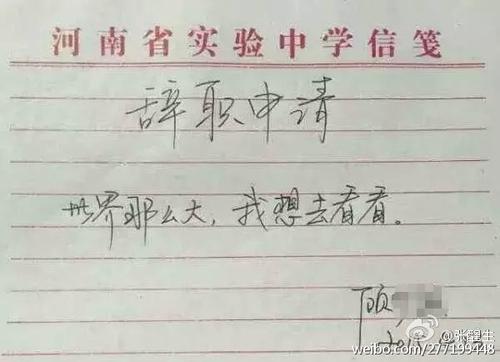 河南省实验中学信笺
辞职申请
世界那么大，我想去看看。
顾
@张锽生
weibo.com/277199448